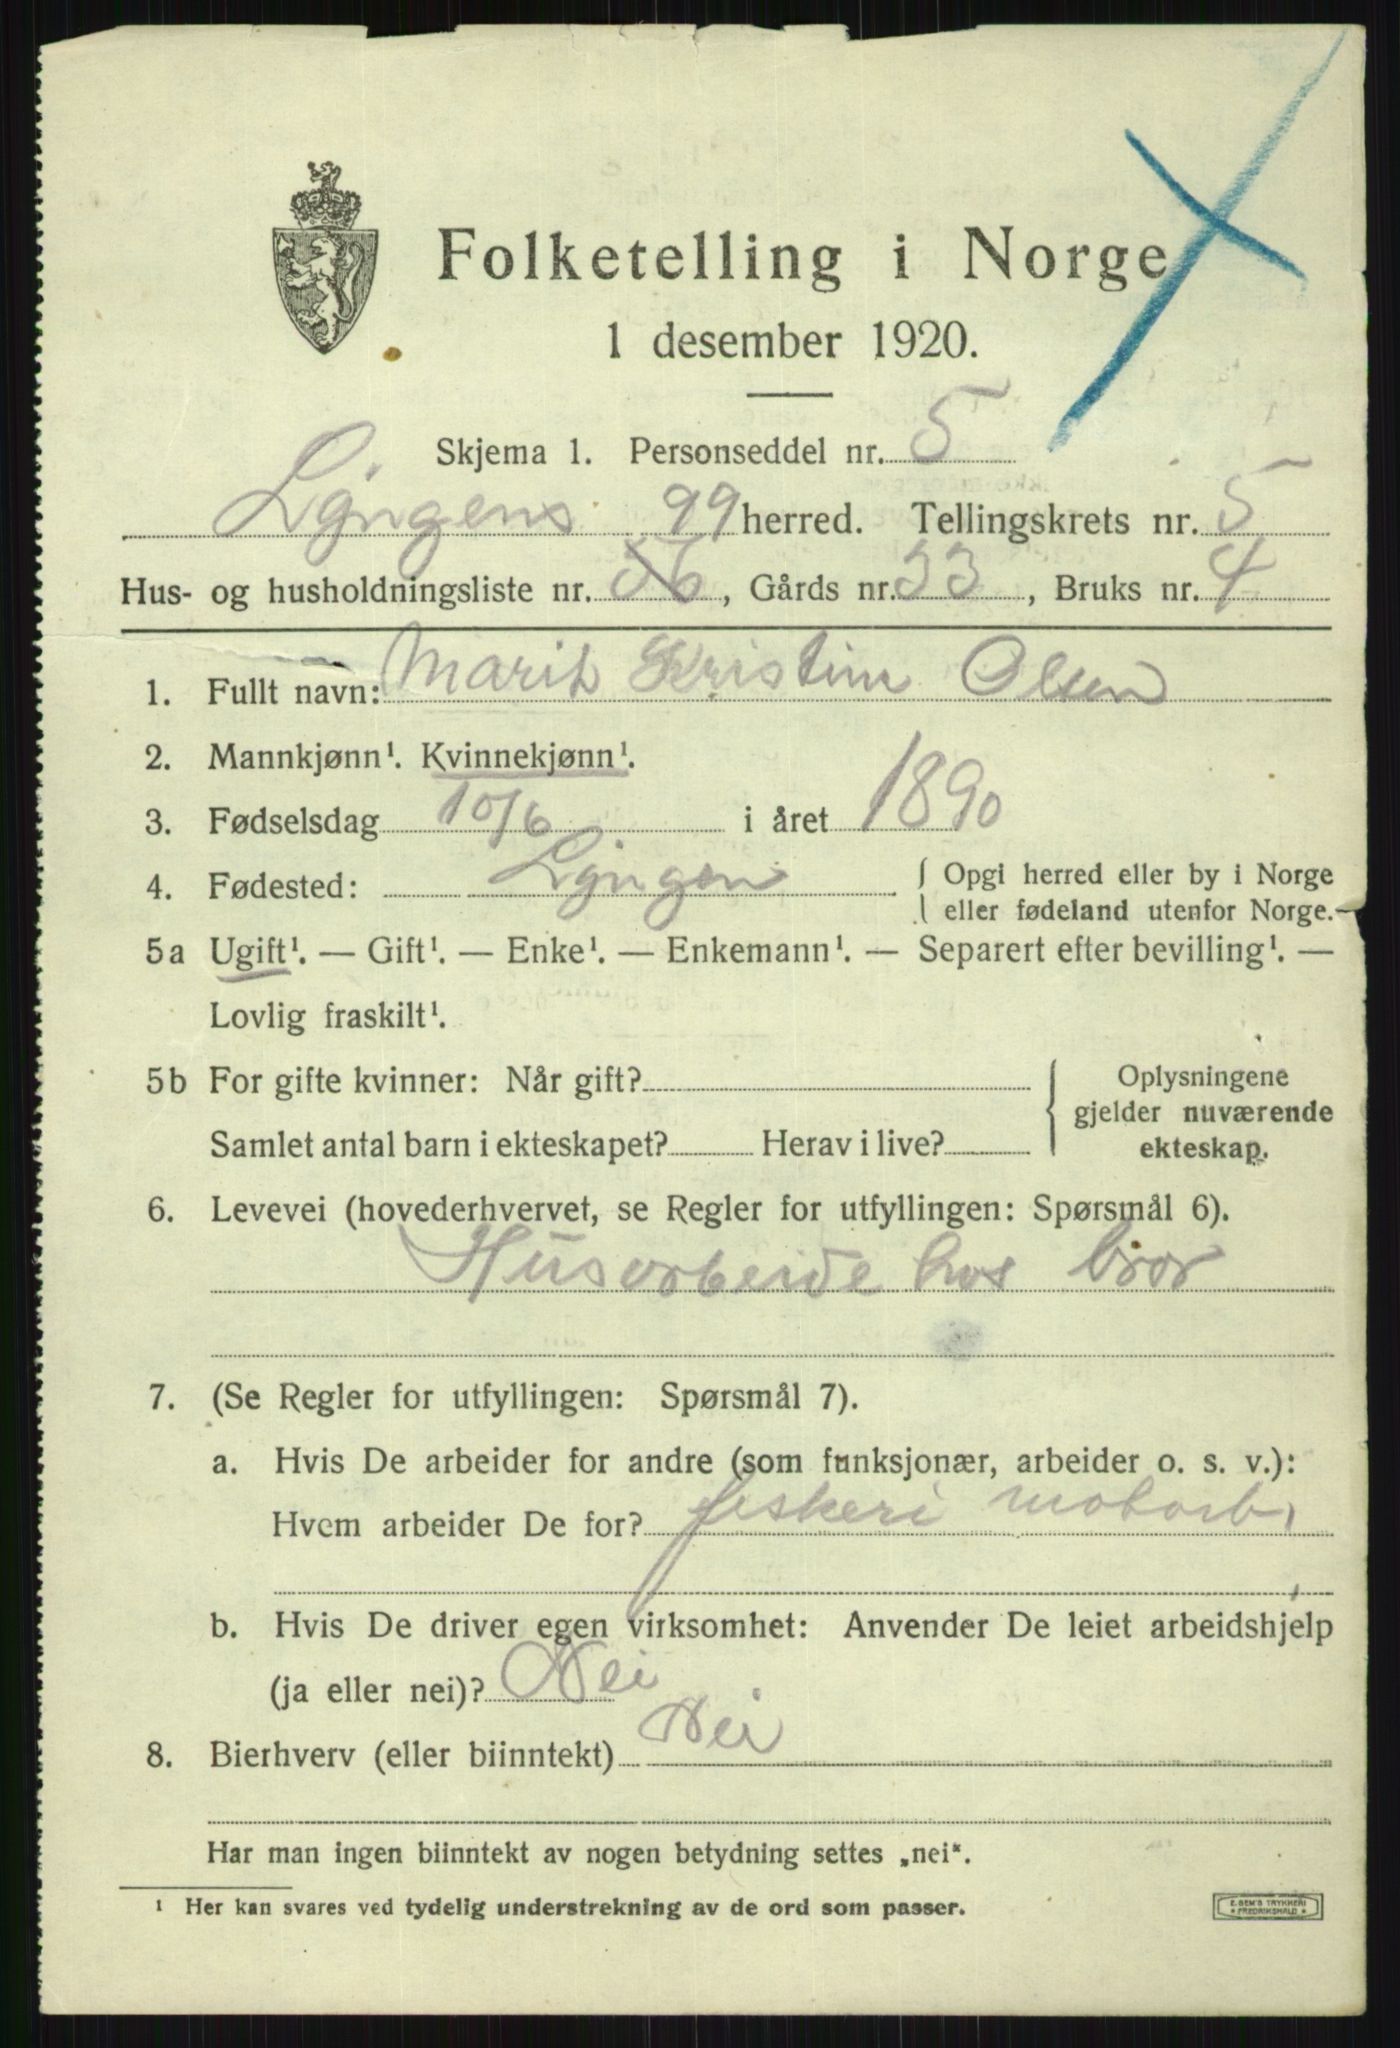 Folketelling i Norge
1 desember 1920.
Skjema 1. Personseddel nr. 5
Lyngens 99 herred. Tellingskrets nr. 5
Hus- og husholdningsliste nr. 36, Gårds nr. 33, Bruks nr. 4
1. Fullt navn: Marit Kristine Olsen
2. Mannkjønn¹. Kvinnekjønn¹.
3. Fødselsdag 10/6 i året 1890
4. Fødested: Lyngen { Opgi herred eller by i Norge
eller fødeland utenfor Norge.
5a Ugift¹. — Gift¹. — Enke¹. — Enkemann¹. — Separert efter bevilling¹. —
Lovlig fraskilt¹.
5b For gifte kvinner: Når gift? { Oplysningene
gjelder nuværende
Samlet antal barn i ekteskapet? Herav i live? ekteskap.
6. Levevei (hovederhvervet, se Regler for utfyllingen: Spørsmål 6).
Husarbeide hos bror
7. (Se Regler for utfyllingen: Spørsmål 7).
a. Hvis De arbeider for andre (som funksjonær, arbeider o. s. v.):
Hvem arbeider De for? fiskeri motorb,
b. Hvis De driver egen virksomhet: Anvender De leiet arbeidshjelp
(ja eller nei)? Nei
8. Bierhverv (eller biinntekt) Nei
Har man ingen biinntekt av nogen betydning settes „nei“.
¹ Her kan svares ved tydelig understrekning av de ord som passer.
E. SEM'S TRYKKERI
FREDRIKSHALD